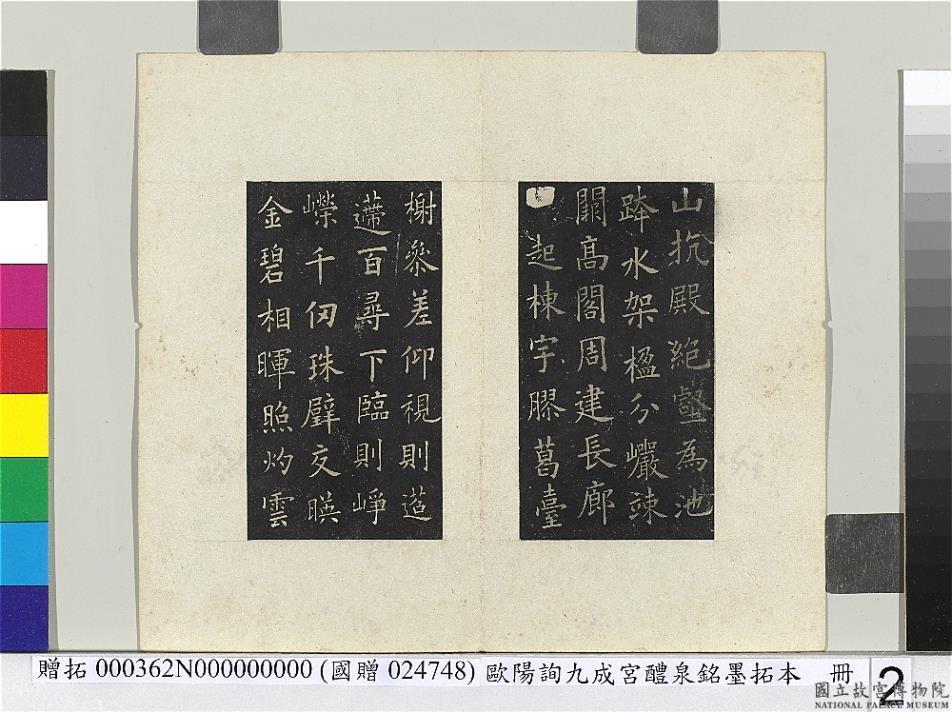 山抗殿絕壑為池
跨水架楹分巖竦
闕高閣周建長廊
起棟宇膠葛臺
榭叅差仰視則迢
遰百尋下臨則崢
嶸千仞珠璧交暎
金碧相暉照灼雲
贈拓 000362N000000000 (國贈 024748) 歐陽詢九成宮醴泉銘墨拓本 冊 2
國立故宮博物院
NATIONAL PALACE MUSEUM